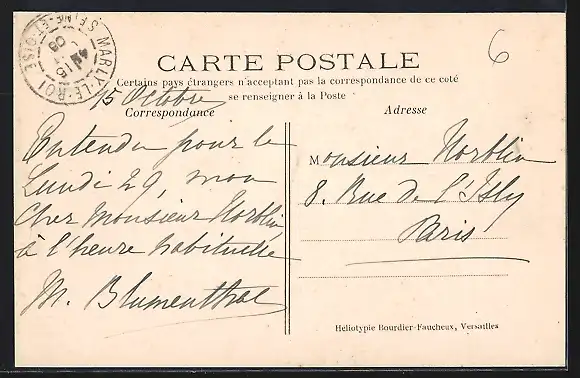 MARLY-LE-ROI
SEINE-ET-OISE
15
6
CARTE POSTALE
Certains pays étrangers n'acceptant pas la correspondance de ce coté
se renseigner à la Poste
15 Octobre
Correspondance
Adresse
Entendu pour le
Lundi 29, mon
Cher Monsieur Norblin
à l'heure habituelle
M. Blumenthal
Monsieur Norblin
8. Rue de l'Isly
Paris
Héliotypie Bourdier-Faucheux, Versailles